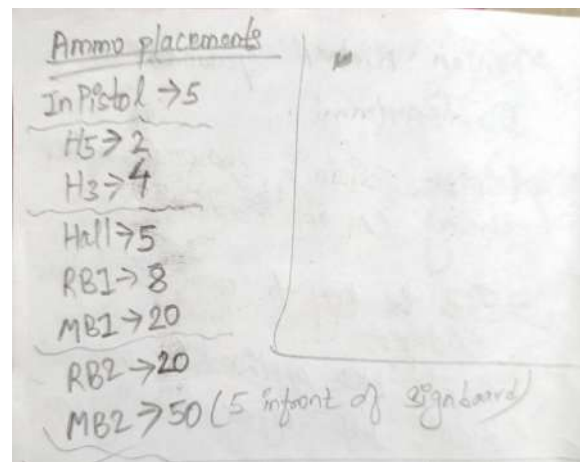 Ammo placements
InPistol → 5
H5 → 2
H3 → 4
Hall → 5
RB1 → 8
MB1 → 20
RB2 → 20
MB2 → 50 (5 infront of signboard)